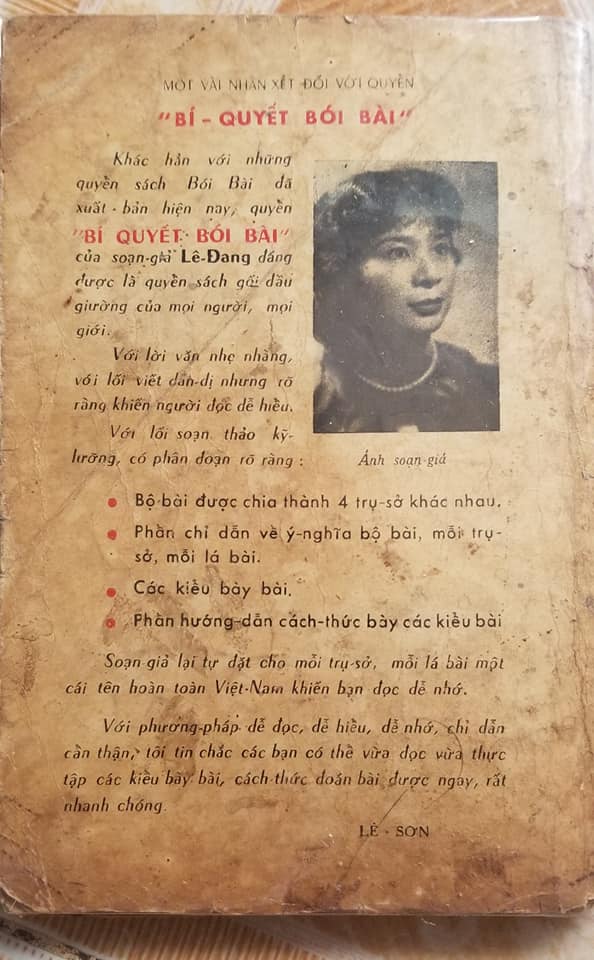 MỘT VÀI NHẬN XÉT ĐỐI VỚI QUYỂN
"BÍ - QUYẾT BÓI BÀI"
Khác hẳn với những
quyển sách Bói Bài đã
xuất-bản hiện nay, quyển
"BÍ QUYẾT BÓI BÀI"
của soạn-giả Lê-Đang đáng
được là quyển sách gối đầu
giường của mọi người, mọi
giới.
Với lời văn nhẹ nhàng,
với lối viết dản-dị nhưng rõ
ràng khiến người đọc dễ hiểu.
Với lối soạn thảo kỹ-
lưỡng, có phân đoạn rõ ràng :
Ảnh soạn-giả
• Bộ bài được chia thành 4 trụ-sở khác nhau.
• Phần chỉ dẫn về ý-nghĩa bộ bài, mỗi trụ-
sở, mỗi lá bài.
• Các kiểu bày bài.
• Phần hướng-dẫn cách-thức bày các kiểu bài
Soạn-giả lại tự đặt cho mỗi trụ-sở, mỗi lá bài một
cái tên hoàn toàn Việt-Nam khiến bạn đọc dễ nhớ.
Với phương-pháp dễ đọc, dễ hiểu, dễ nhớ, chỉ dẫn
cẩn thận, tôi tin chắc các bạn có thể vừa đọc vừa thực
tập các kiểu bày bài, cách-thức đoán bài được ngay, rất
nhanh chóng.
LÊ - SƠN